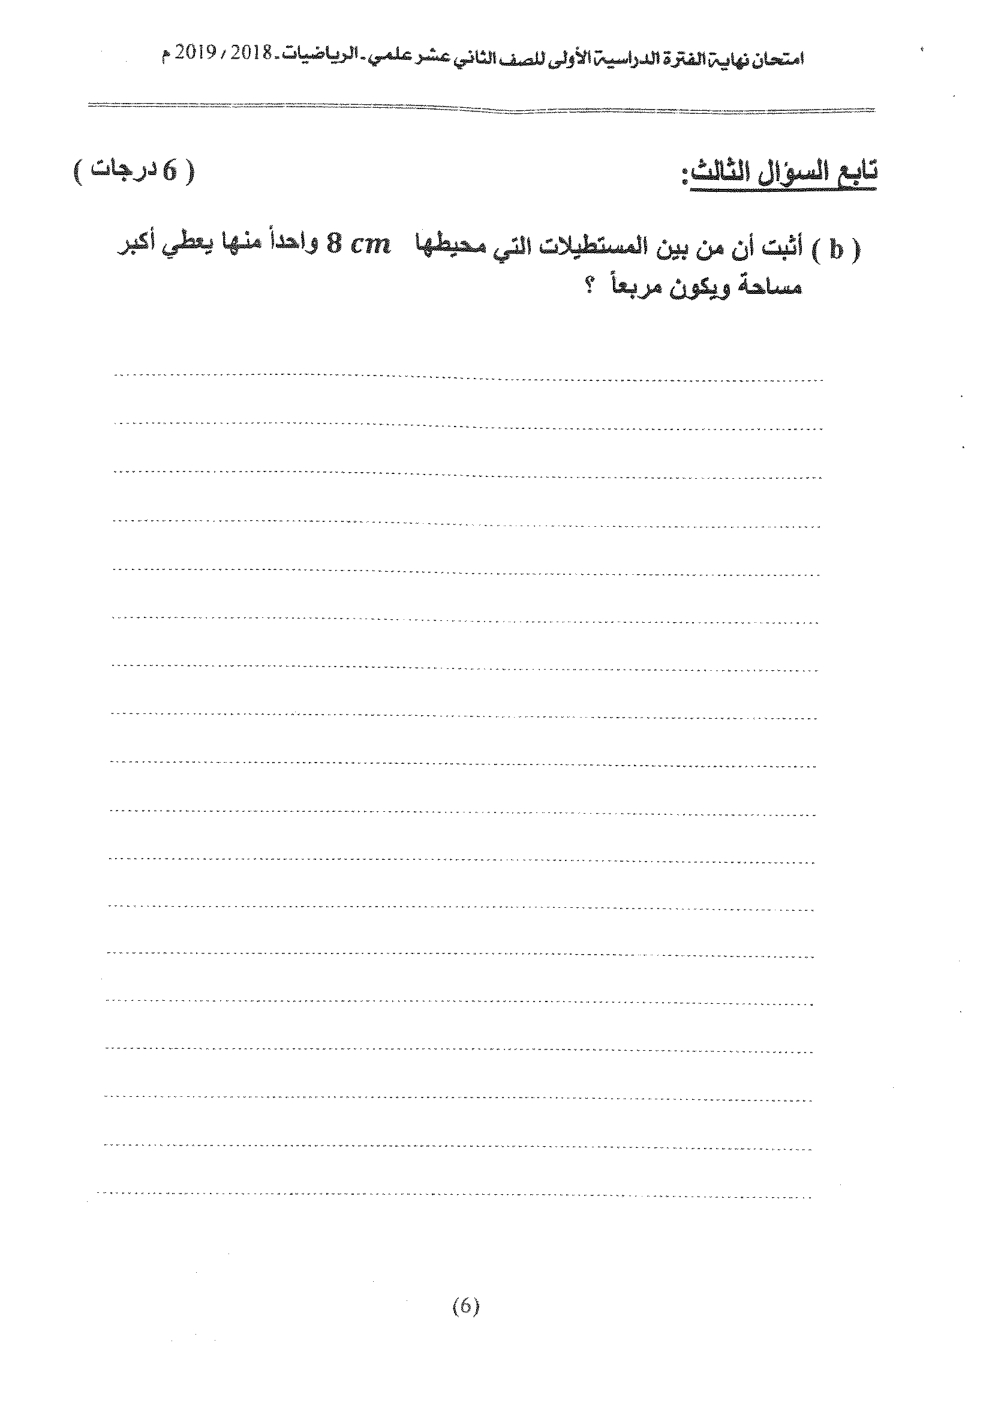 امتحان نهاية الفترة الدراسية الأولى للصف الثاني عشر علمي - الرياضيات - 2018 / 2019 م
تابع السؤال الثالث: ( 6 درجات )
( b ) أثبت أن من بين المستطيلات التي محيطها 8 cm واحداً منها يعطي أكبر
مساحة ويكون مربعاً ؟
(6)